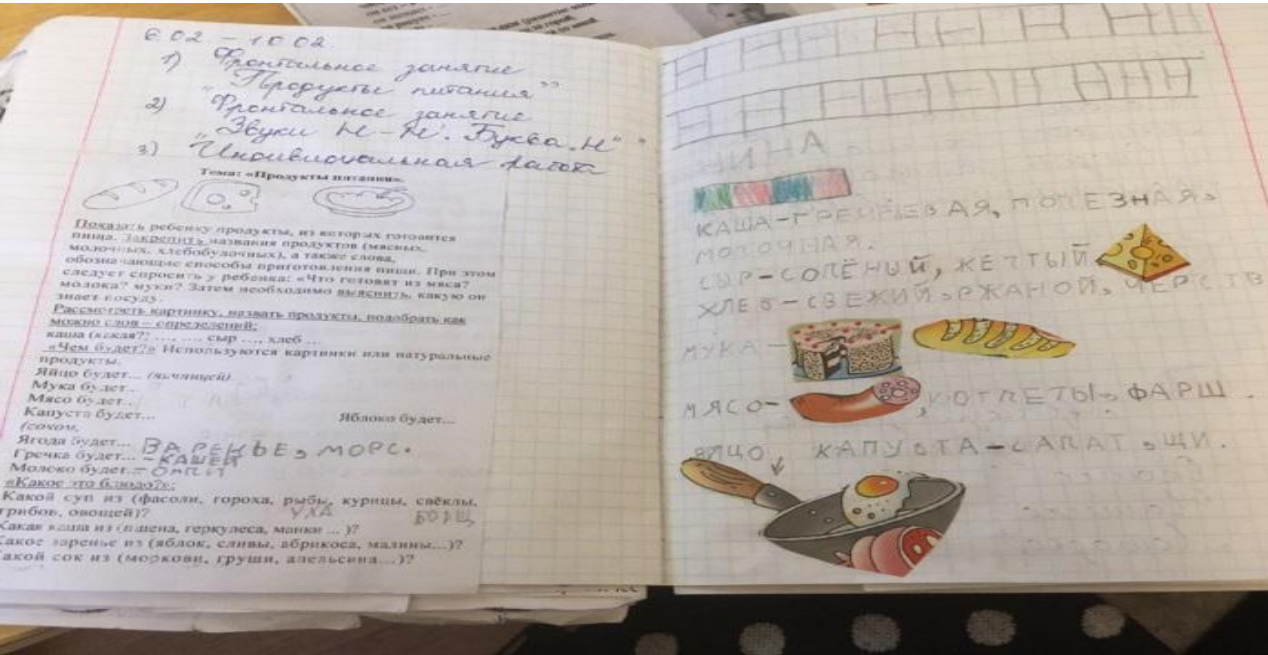 6.02. – 10.02.
1) Фронтальное занятие
„Продукты питания”
2) Фронтальное занятие
„Звуки Н – Н'. Буква Н"
3) Индивидуальная работа
Тема: «Продукты питания».
Показать ребенку продукты, из которых готовится
пища. Закрепить названия продуктов (мясных,
молочных, хлебобулочных), а также слова,
обозначающие способы приготовления пищи. При этом
следует спросить у ребенка: «Что готовят из мяса?
молока? муки? Затем необходимо выяснить, какую он
знает посуду.
Рассмотреть картинку, назвать продукты, подобрать как
можно слов – определений:
каша (какая?) …, …, сыр …, хлеб …
«Чем будет?» Используются картинки или натуральные
продукты.
Яйцо будет... (яичницей)
Мука будет...
Мясо будет...
Капуста будет... Яблоко будет...
(соком,
Ягода будет... ВАРЕНЬЕ, МОРС.
Гречка будет... – КАШЕЙ
Молоко будет... – ОМЛЕТ
«Какое это блюдо?»:
Какой суп из (фасоли, гороха, рыбы, курицы, свёклы,
грибов, овощей)? УХА БОРЩ
Какая каша из (пшена, геркулеса, манки ... )?
Какое варенье из (яблок, сливы, абрикоса, малины...)?
Какой сок из (моркови, груши, апельсина...)?
Н Н Н Н Н Н Н Н Н
Н Н Н Н Н Н Н Н Н Н
НИНА
КАША – ГРЕЧНЕВАЯ, ПОЛЕЗНАЯ,
МОЛОЧНАЯ.
СЫР – СОЛЁНЫЙ, ЖЕЛТЫЙ
ХЛЕБ – СВЕЖИЙ, РЖАНОЙ, ЧЕРСТВ
МУКА –
МЯСО – , КОТЛЕТЫ, ФАРШ.
ЯЙЦО КАПУСТА – САЛАТ, ЩИ.